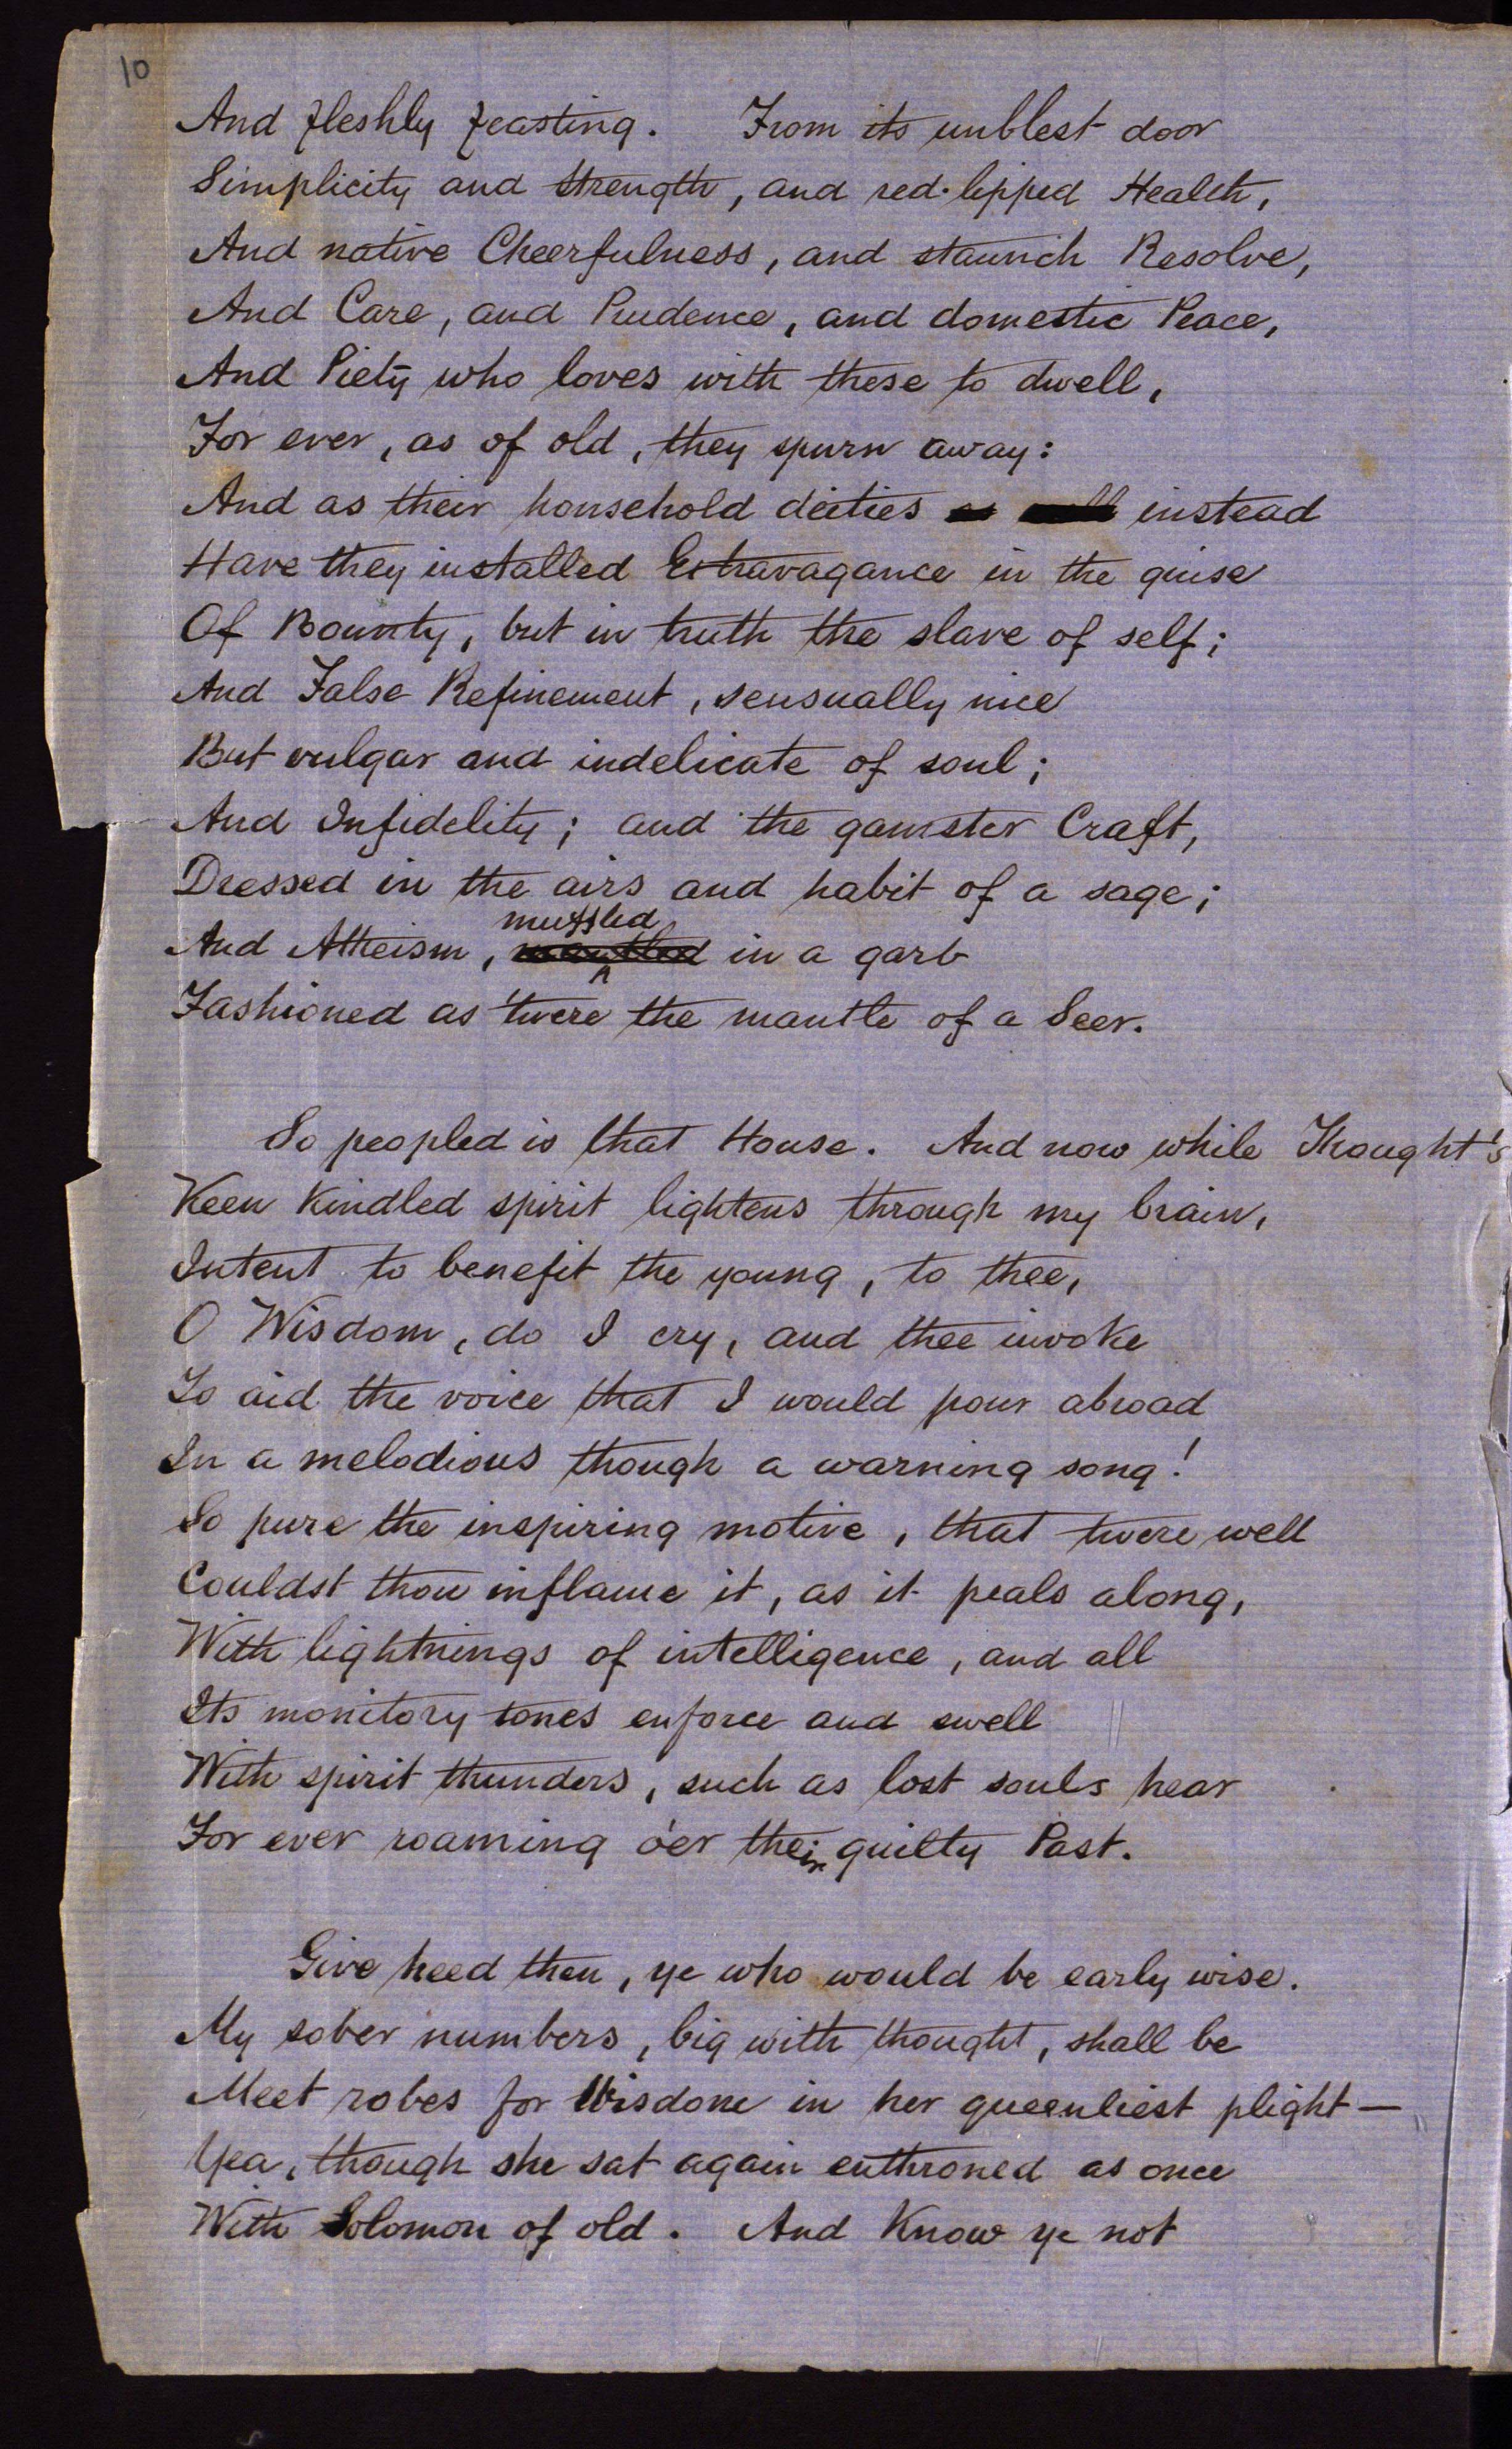 10
And fleshly feasting. From its unblest door
Simplicity and Strength, and red-lipped Health,
And native Cheerfulness, and staunch Resolve,
And Care, and Prudence, and domestic Peace,
And Piety who loves with these to dwell,
For ever, as of old, they spurn away:
And as their household deities instead
Have they installed Extravagance in the guise
Of Bounty, but in truth the slave of self;
And False Refinement, sensually nice
But vulgar and indelicate of soul;
And Infidelity; and the gamster Craft,
Dressed in the airs and habit of a sage;
muffled
And Atheism, in a garb
Fashioned as 'twere the mantle of a Seer.
So peopled is that House. And now while Thought's
Keen kindled spirit lightens through my brain,
Intent to benefit the young, to thee,
O Wisdom, do I cry, and thee invoke
To aid the voice that I would pour abroad
In a melodious though a warning song!
So pure the inspiring motive, that twere well
Couldst thou inflame it, as it peals along,
With lightnings of intelligence, and all
Its monitory tones enforce and swell
With spirit thunders, such as lost souls hear
For ever roaming o'er their guilty Past.
Give heed then, ye who would be early wise.
My sober numbers, big with thought, shall be
Meet robes for Wisdom in her queenliest plight—
Yea, though she sat again enthroned as once
With Solomon of old. And Know ye not